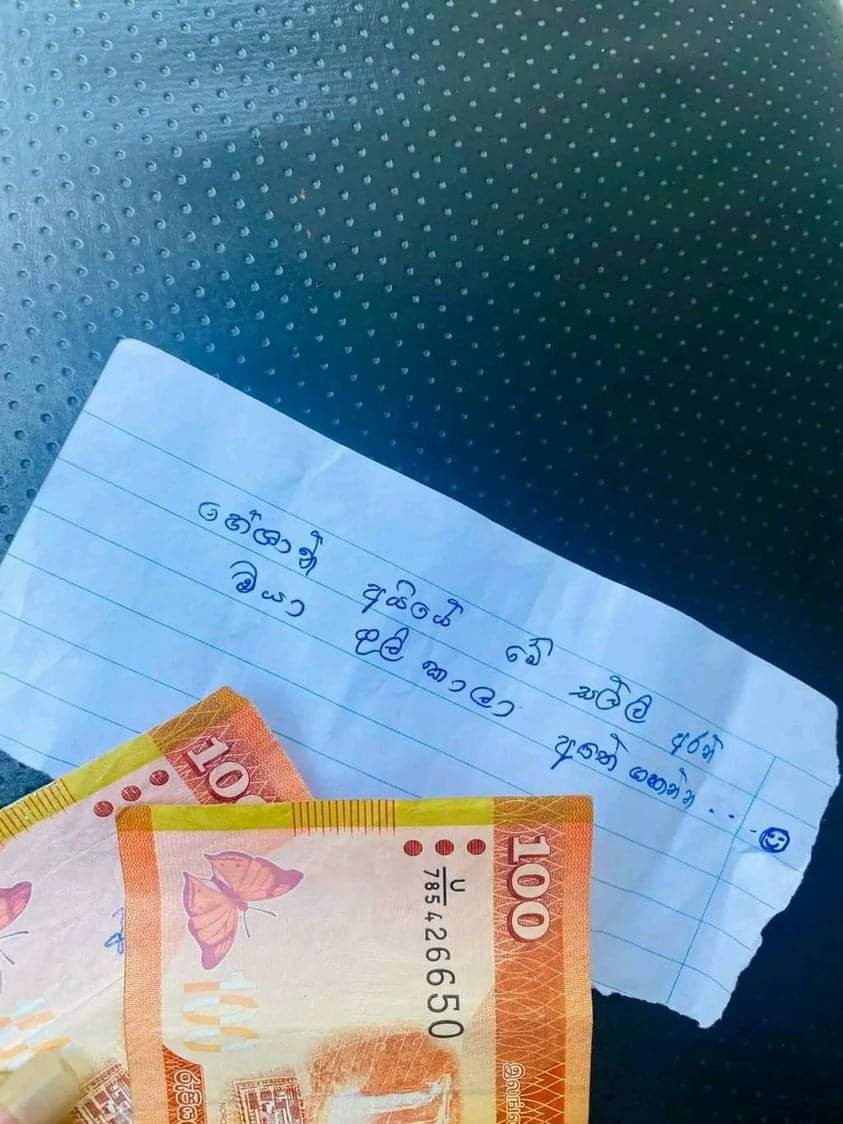 හේශාන් අයියේ මේ සල්ලි අරන්
ඔයා කාලා ගහන්න....
100
100
U/785 426650
100